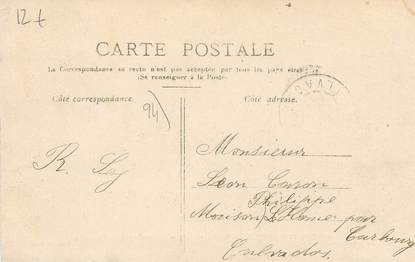 12 €
CARTE POSTALE
La Correspondance au recto n'est pas acceptée par tous les pays étrangers
(Se renseigner à la Poste).
Côté correspondance.
Côté adresse.
94
R.
Monsieur
Léon Caron
Philippe
Maison par
Cabourg
Calvados